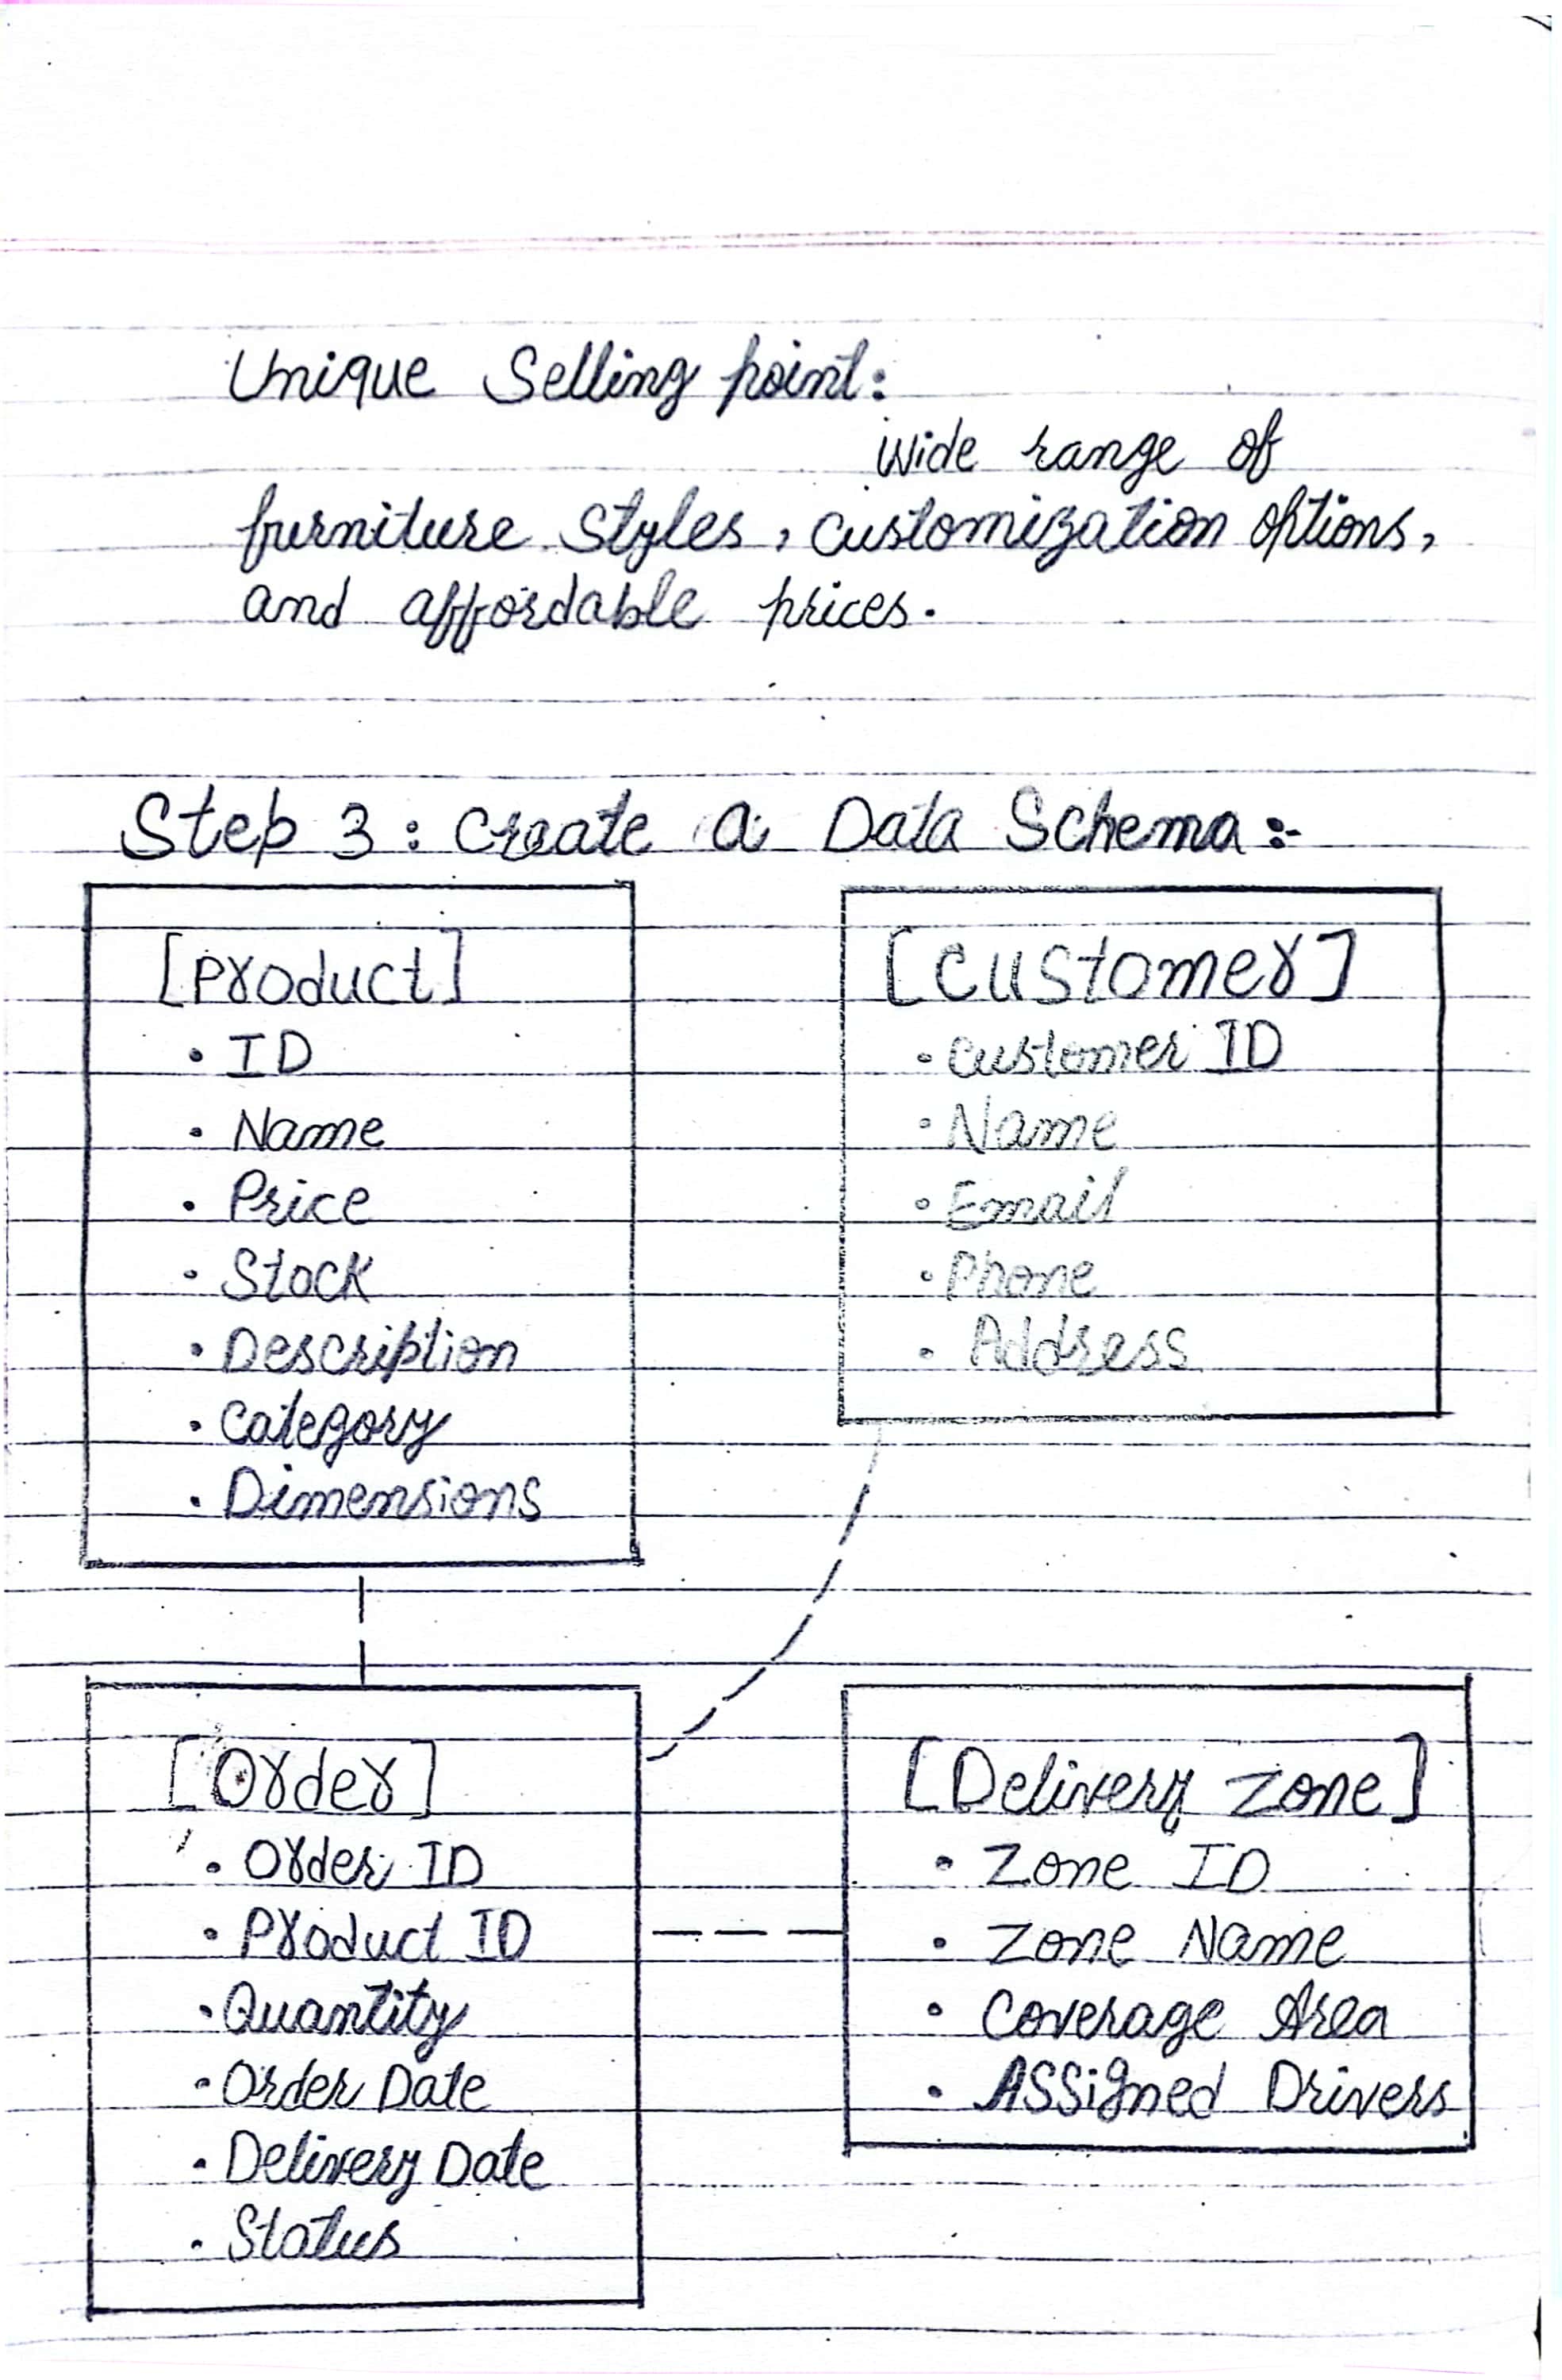 Unique Selling point:
wide range of
furniture styles, customization options,
and affordable prices.
Step 3: Create a Data Schema:-
[Product]
• ID
• Name
• Price
• Stock
• Description
• Category
• Dimensions
[Customer]
• Customer ID
• Name
• Email
• Phone
• Address
[Order]
• Order ID
• Product ID
• Quantity
• Order Date
• Delivery Date
• Status
[Delivery Zone]
• Zone ID
• Zone Name
• Coverage Area
• Assigned Drivers